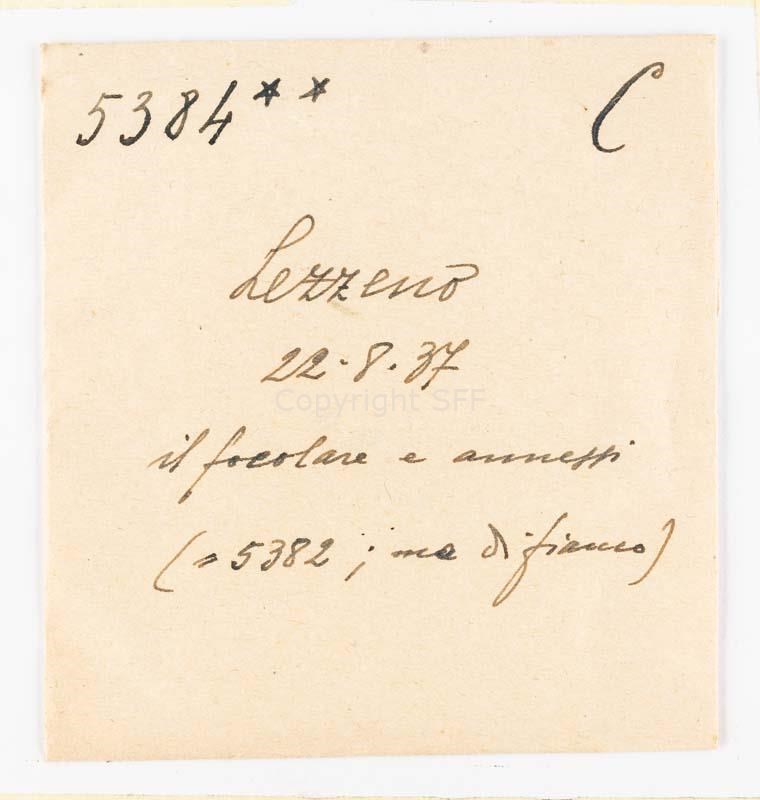 5384** C
Lezzeno
22·8·37
Copyright SFF
il focolare e annessi
(= 5382 ; ma di fianco)